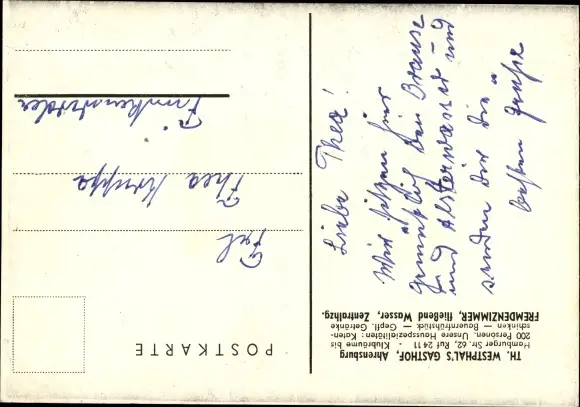 TH. WESTPHAL'S GASTHOF, Ahrensburg
Hamburger Str. 62, Ruf 24 11 · Klubräume bis
200 Personen. Unsere Hausspezialitäten: Katen-
schinken — Bauernfrühstück — Gepfl. Getränke
FREMDENZIMMER, fließend Wasser, Zentralhzg.
Liebe Thea!
Wir sitzen hier
gemütlich bei Brause
und Alsterwasser und
senden Dir die
besten Grüße
POSTKARTE
Frl
Thea Kruppa